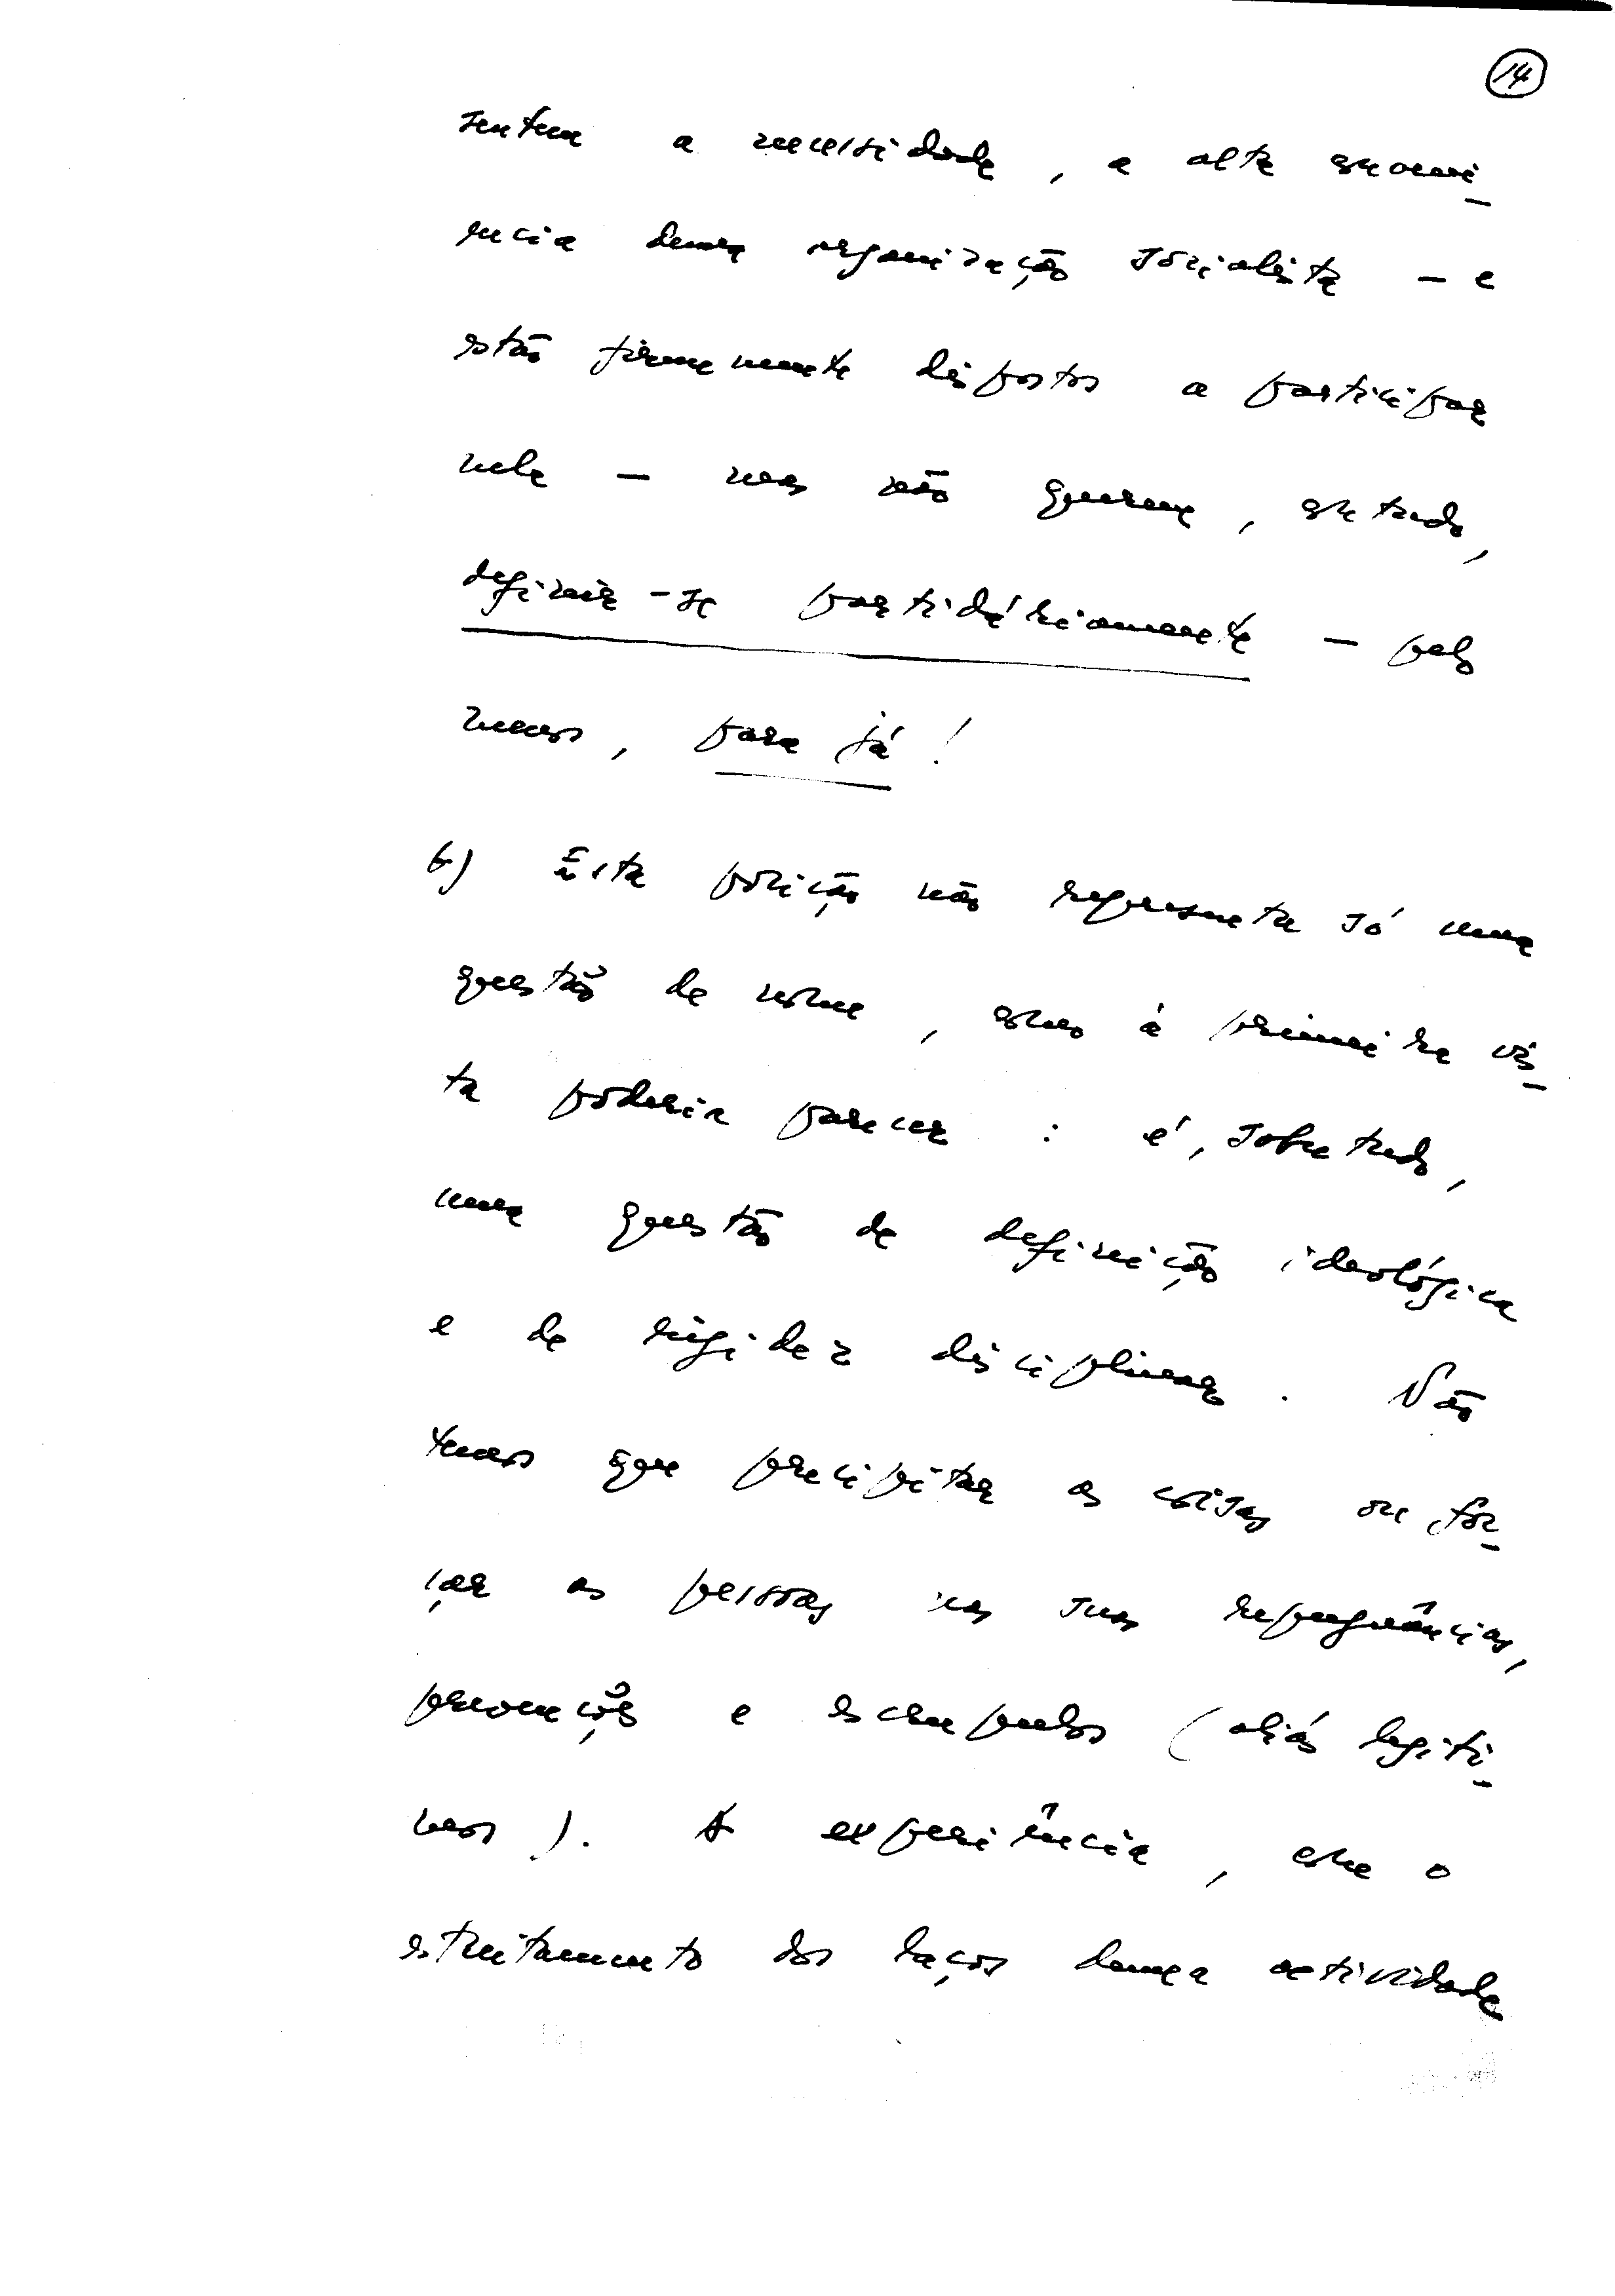 14
sentem a necessidade, a alta conveni-
ência duma organização socialista – e
estão firmemente dispostos a participar
nela – mas não querem, contudo,
definir-se partidáriamente – pelo
menos, para já!
b) Esta posição não representa só uma
questão de nome, como à primeira vis-
ta poderia parecer: é, sobretudo,
uma questão de definição ideológica
e de rigidez disciplinar. Não
temos que precipitar as coisas ou for-
çar as pessoas nas suas repugnâncias,
prevenções e escrupulos (aliás legiti-
mos). A experiência, com o
estreitamento dos laços duma actividade